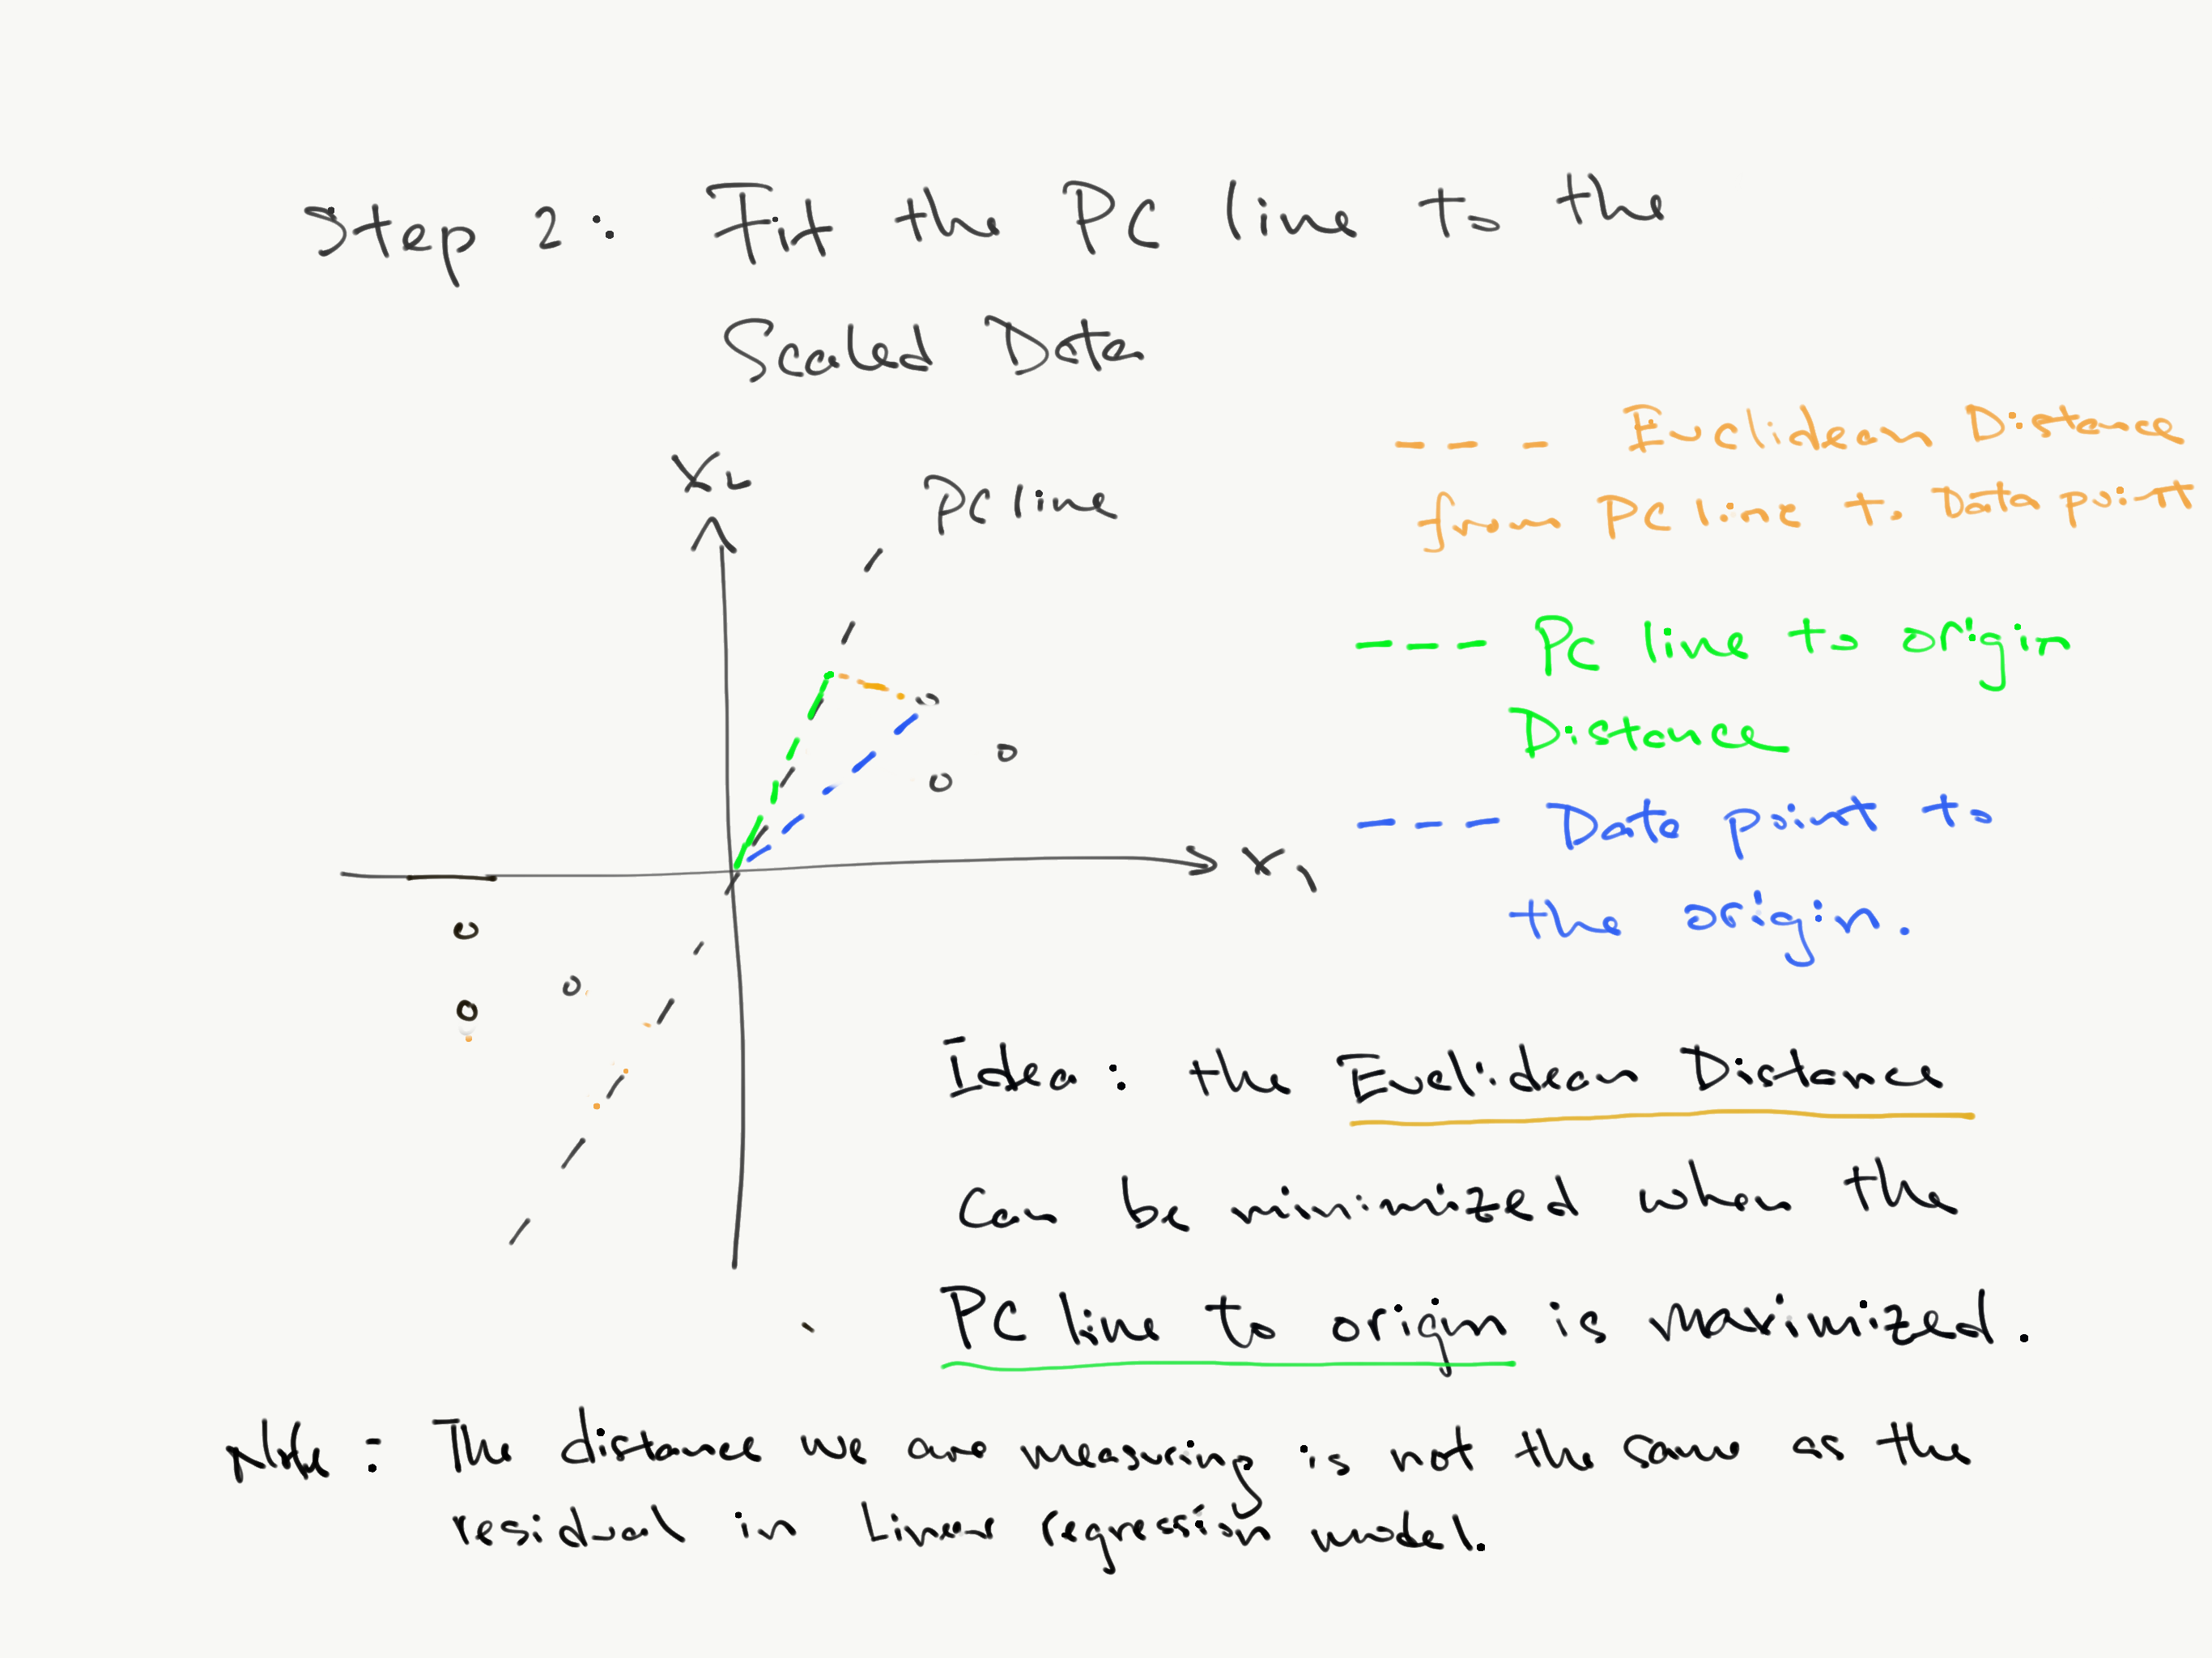 Step 2: Fit the PC line to the
Scaled Data
--- Euclidean Distance
from PC line to Data point
X2
PC line
---- PC line to origin
Distance
--- Data point to
the origin.
X1
Idea: the Euclidean Distance
can be minimized when the
PC line to origin is maximized.
Note: The distance we are measuring is not the same as the
residual in Linear regression model.